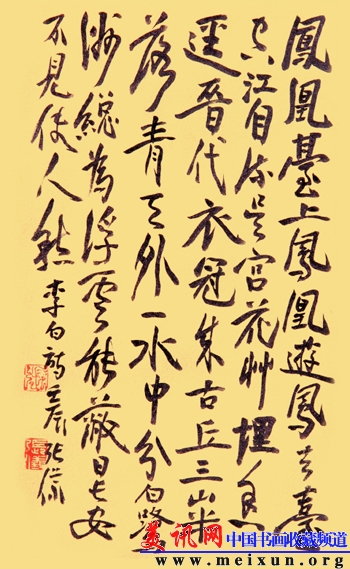 鳳凰臺上鳳凰遊鳳去臺
空江自流吳宮花艸埋幽
逕晉代衣冠成古丘三山半
落青天外一水中分白鷺
洲總為浮雲能蔽日長安
不見使人愁 李白詩 壬辰 张
美讯网 中国书画收藏频道
www.meixun.org